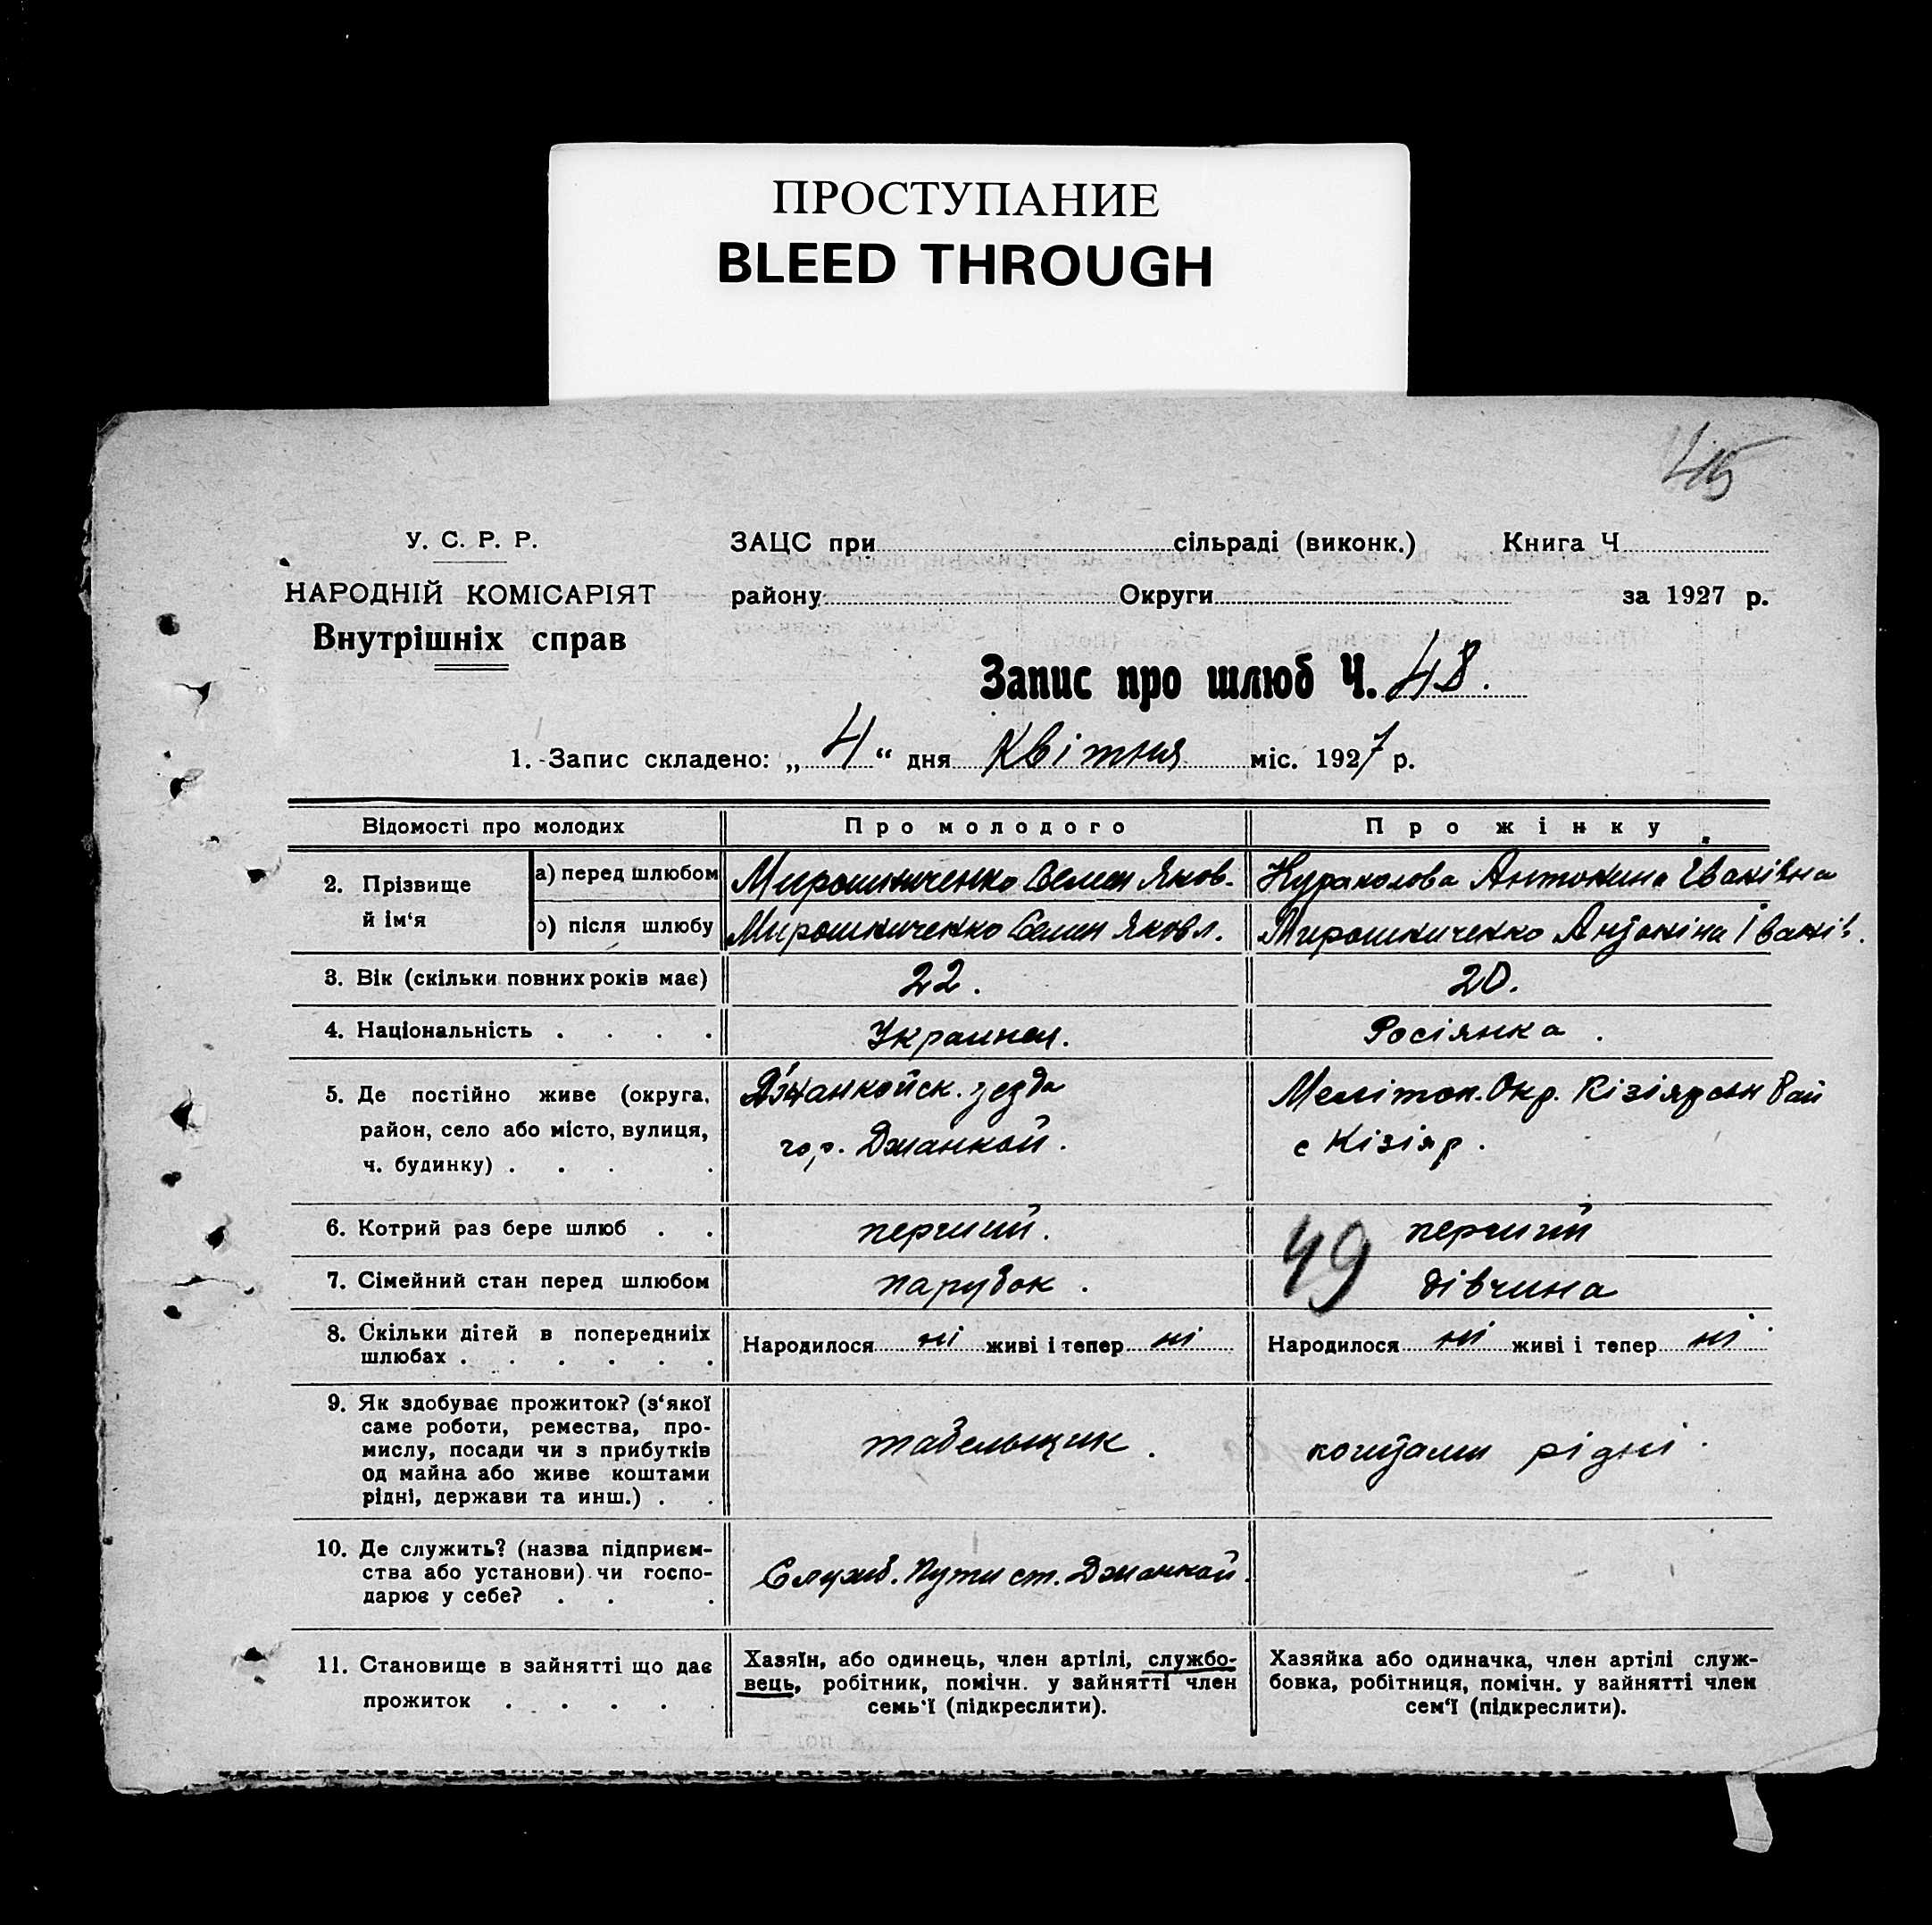 ПРОСТУПАНИЕ
BLEED THROUGH
45
У. С. Р. Р.
НАРОДНІЙ КОМІСАРІЯТ
Внутрішніх справ
ЗАЦС при сільраді (виконк.) Книга Ч
району Округи за 1927 р.
Запис про шлюб Ч. 48.
1. Запис складено: „ 4 “ дня Квітня міс. 1927 р.
Відомості про молодих Про молодого Про жінку
2. Прізвище й ім‘я
а) перед шлюбом Мирошниченко Семен Яков. Антонина Іванівна
б) після шлюбу Мирошниченко Семен Яковл. Мирошниченко Антоніна Іванів.
3. Вік (скільки повних років має) 22. 20.
4. Національність . . . . Украинец. Росіянка .
5. Де постійно живе (округа, район, село або місто, вулиця, ч. будинку) . . . .
Джанкойск. уезда
гор. Джанкой.
Мелітоп. Окр. Кізіярськ Рай
с Кізіяр.
6. Котрий раз бере шлюб . . перший. перший
49
7. Сімейний стан перед шлюбом парубок . дівчина
8. Скільки дітей в попередниіх шлюбах . . . . . .
Народилося ні живі і тепер ні
Народилося ні живі і тепер ні
9. Як здобуває прожиток? (з‘якої
саме роботи, ремества, про-
мислу, посади чи з прибутків
од майна або живе коштами
рідні, держави та инш.) . .
табельщик . коштами рідні .
10. Де служить? (назва підприєм-
ства або установи) чи госпо-
дарює у себе? . . .
Служб. Пути ст. Джанкой.
11. Становище в зайнятті що дає
прожиток . . . . .
Хазяїн, або одинець, член артілі, службо-
вець, робітник, помічн. у зайнятті член
семь‘ї (підкреслити).
Хазяйка або одиначка, член артілі служ-
бовка, робітниця, помічн. у зайнятті член
сем‘ї (підкреслити).